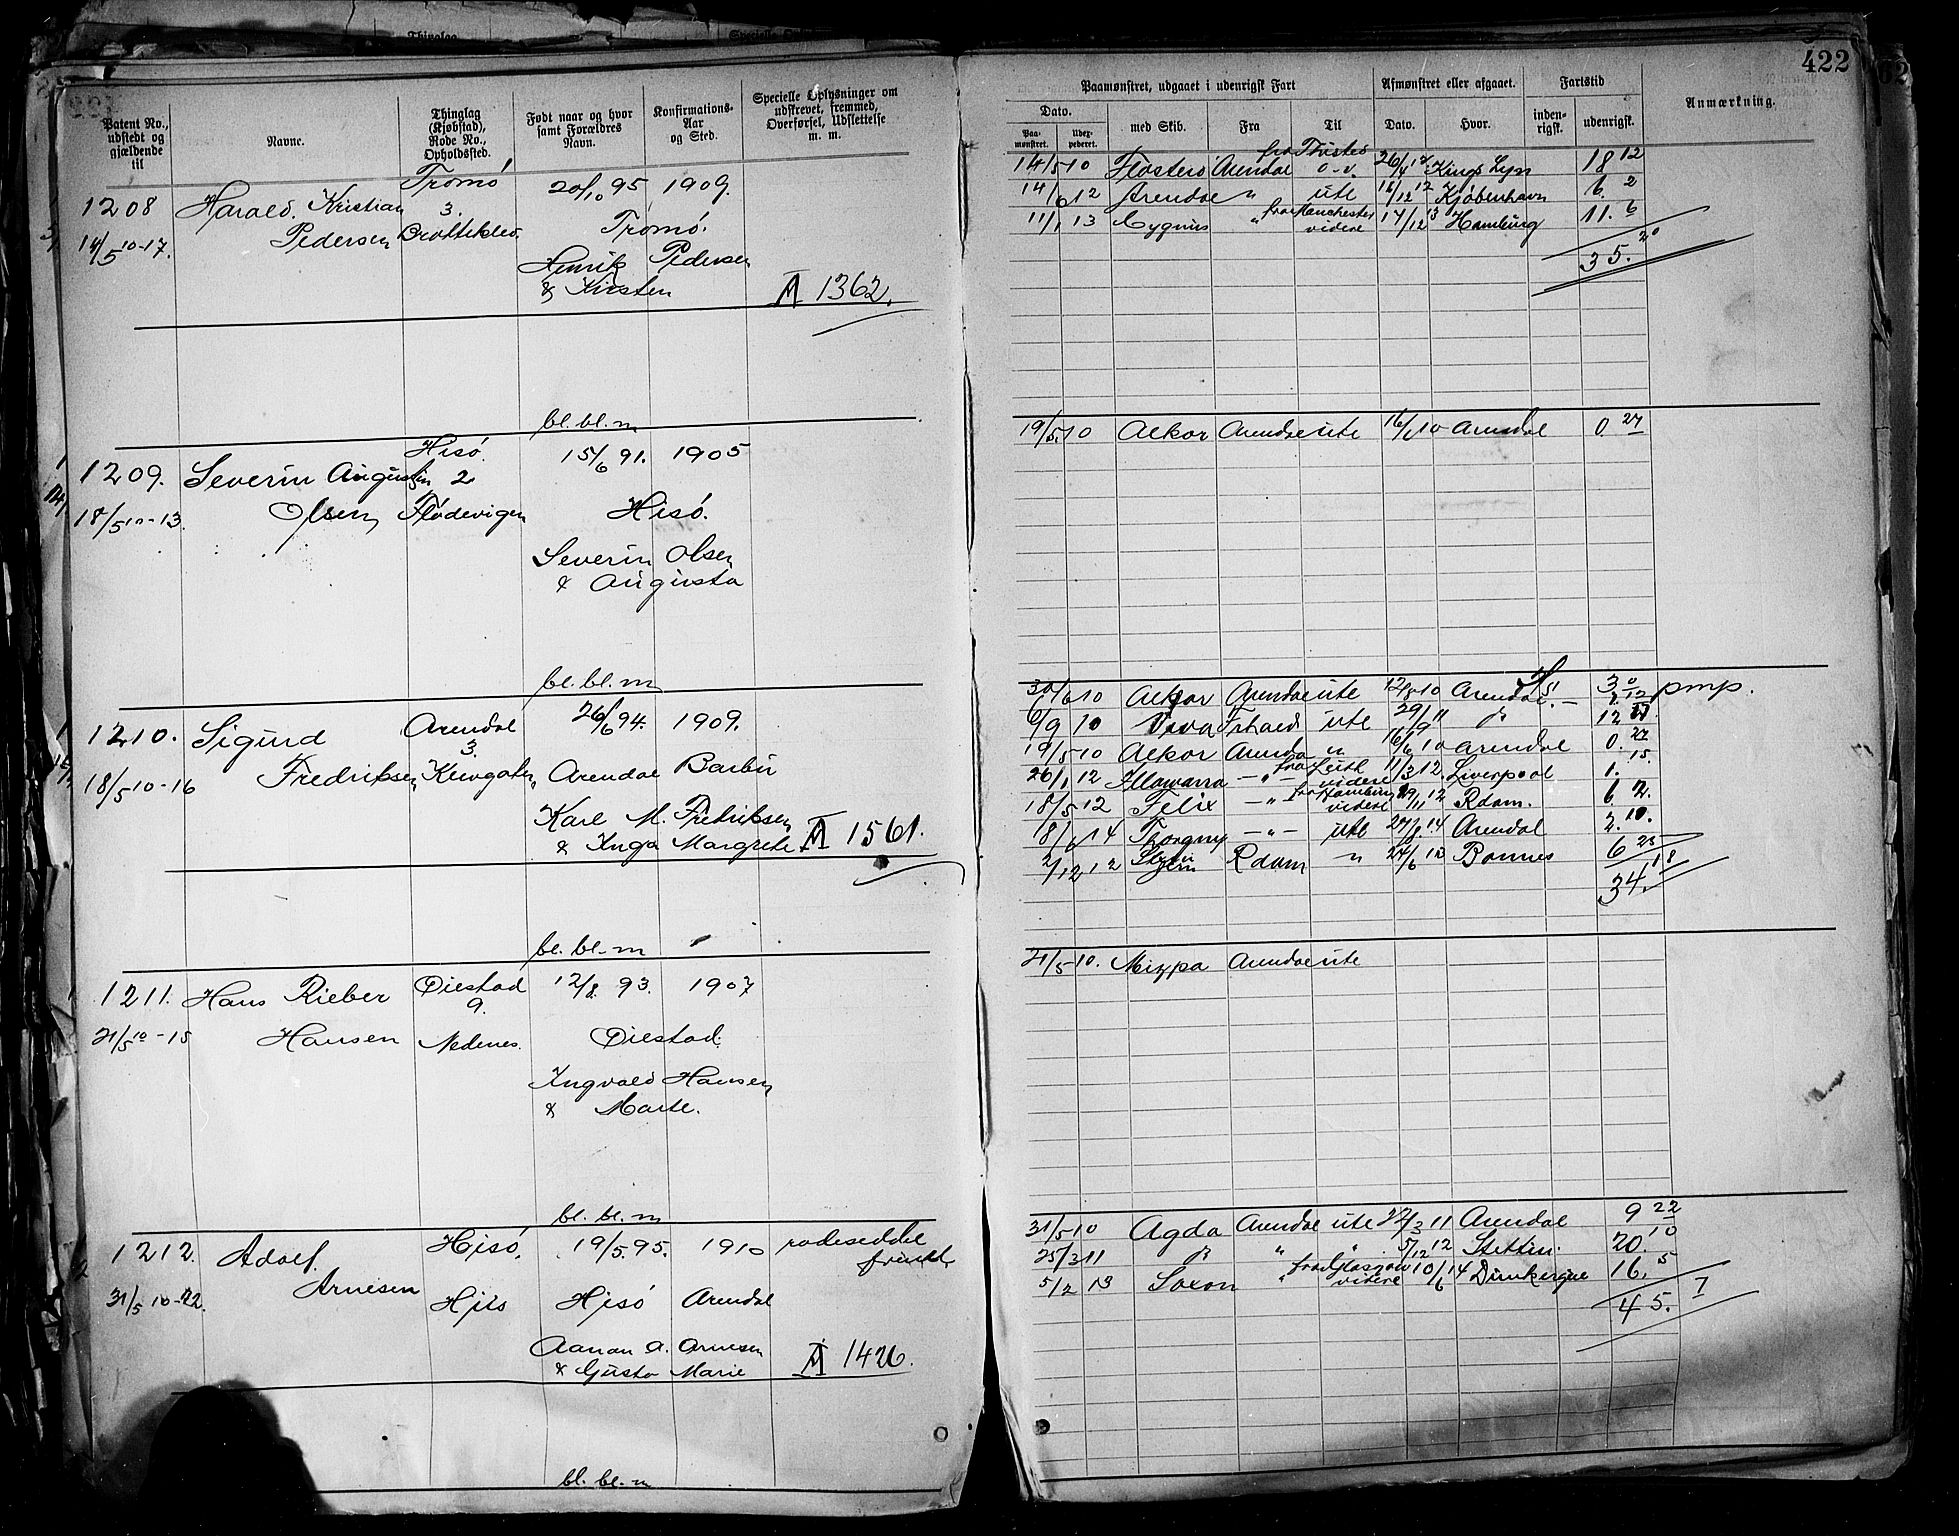 422
Patent No., udstedt og gjældende til
Navne.
Thinglag (Kjøbstad), Rode No., Opholdssted.
Født naar og hvor samt Forældres Navn.
Konfirmations-Aar og Sted.
Specielle Oplysninger om udskrevet, fremmed, Overførsel, Udslettelse m. m.
Paamønstret, udgaaet i udenrigsk Fart
Afmønstret eller afgaaet.
Fartstid
Anmærkning.
Dato.
Paa-mønstret.
Uder-pederet.
med Skib.
Fra
Til
Dato.
Hvor.
inden-rigsk.
udenrigsk.
1208 Harald Kristian Pedersen
14/5 10-17.
Tromø 3. Brattekled.
20/10 95 1909.
Tromø.
Henrik Pedersen
& Kirsten
A 1362.
14/5 10 Flosterø Arendal fra Thisted o-v. 26/4 12 Kings Lynn 18 12
14/6 12 Arendal " ute 16/12 12 Kjøbenhavn 6. 2
11/1 13 Cygnus " fra Manchester videre 17/12 13 Hamburg 11. 6
35. 20
bl. bl. m
1209. Severin Augustin Olsen
18/5 10-13.
Hisø. 2 Flødevigen
15/6 91. 1905
Hisø.
Severin Olsen
& Augusta
19/5 10 Alkor Arendal ute 16/6 10 Arendal 0. 27
bl. bl. m
1210. Sigurd Fredriksen
18/5 10-16
Arendal 3.
26/6 94. 1909.
Arendal Barbu
Karl M. Fredriksen
& Inga Margrete
A 1561.
30/6 10 Alkor Arendal ute 12/8 10 Arendal pmp.
6/9 10 Viva ute 29/9 11 12
19/5 10 Alkor Arendal " 16/6 10 Arendal 0. 27
26/1 12 Illawarra -"- fra Leith videre 11/3 12. Liverpool 1. 15.
18/5 12 Felix -"- fra Hamburg videre 11 12 Rdam. 6 2.
8/6 14 Thorgny -"- ute 27/8 14 Arendal 2. 10.
2/12 12 Rdam " 24/6 13 Bonnes 6 23
34. 18
bl. bl. m
1211. Hans Rieber Hansen
21/5 10-15
Øiestad 9. Nedenes.
12/8. 93. 1907
Øiestad.
Ingvald Hansen
& Marte.
21/5 10. Mizpa Arendal ute
bl. bl. m
1212. Adolf Arnesen
31/5 10-22.
Hisø,
19/5 95. 1910
rodeseddel
Hjsø Arendal
Aanon A. Arnesen
& Gusta Marie
A 1426.
31/5 10 Agda Arendal ute 22/3 11 Arendal 9 22
25/3 11 " " 5/12 12 Stettin. 20. 10
5/2 13 Saxon " fra Glasgow videre 10/6 14 Dunkerque 16. 5
45. 7
bl. bl. m